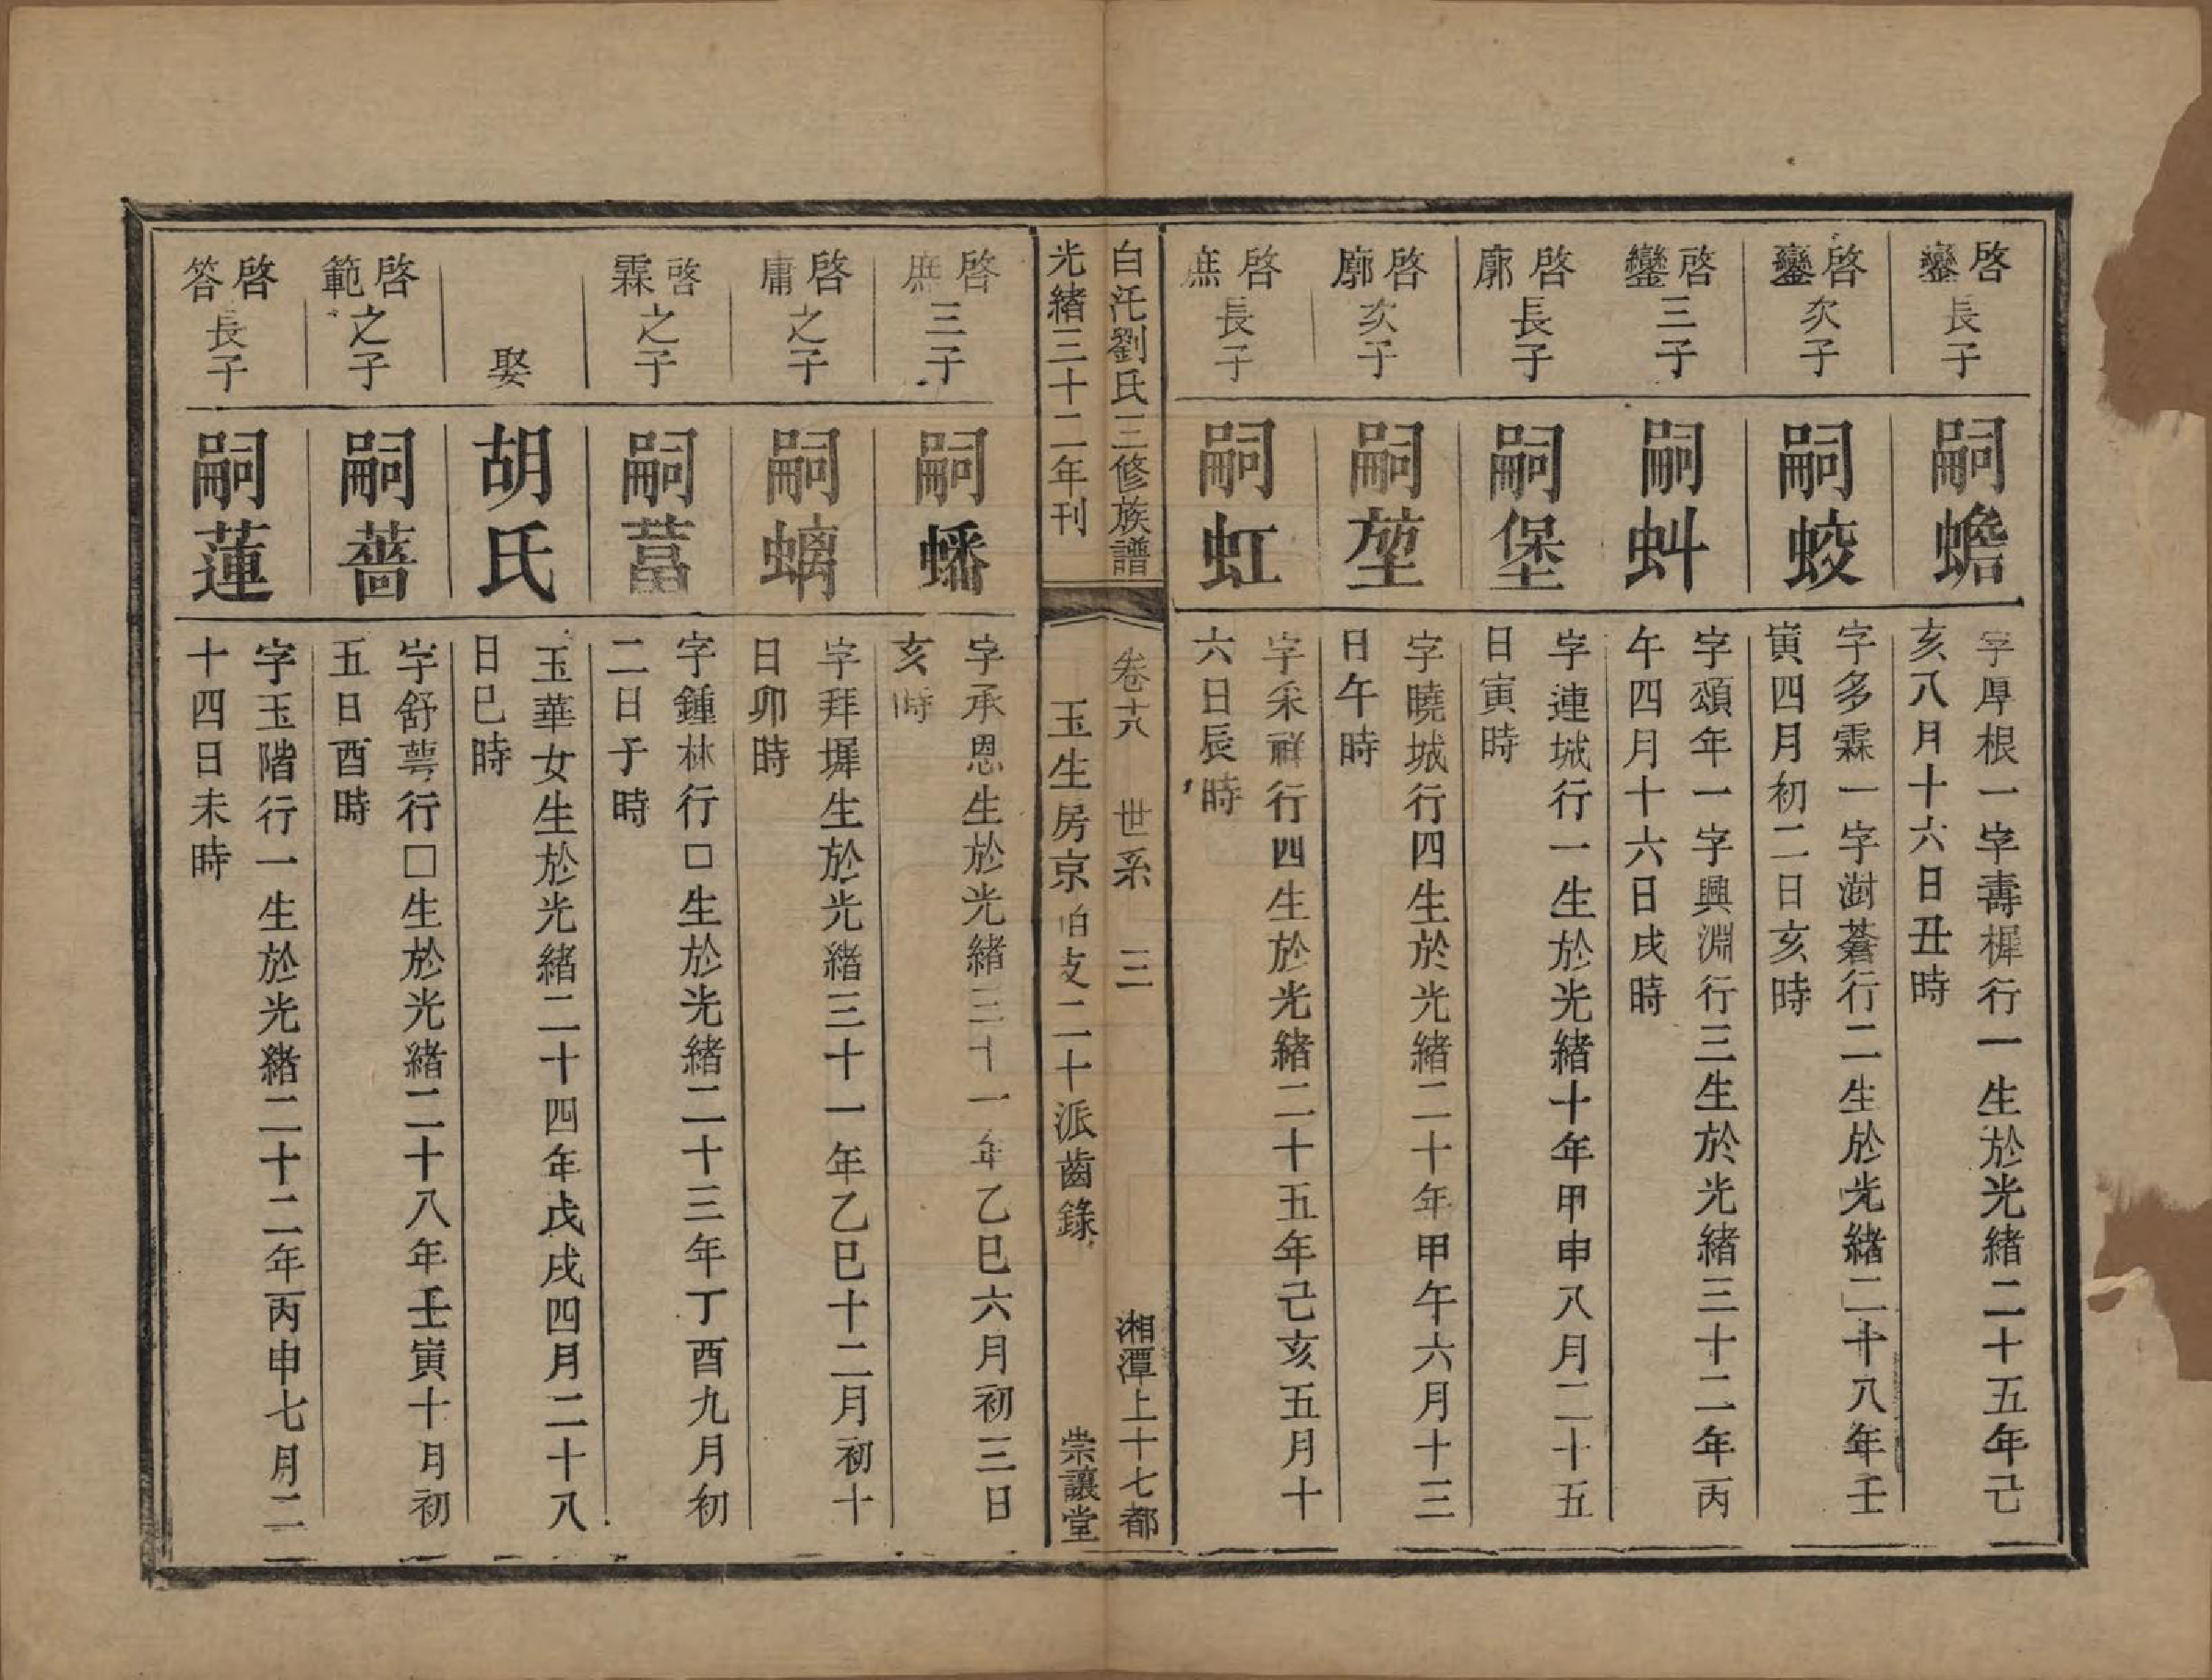 啓鑾長子
嗣蟾
字厚根一字壽樨行一生於光緒二十五年己
亥八月十六日丑時
啓鑾次子
嗣蛟
字多霖一字澍蒼行二生於光緒二十八年壬
寅四月初二日亥時
啓鑾三子
嗣蚪
字頌年一字興淵行三生於光緒三十二年丙
午四月十六日戌時
啓廓長子
嗣堡
字連城行一生於光緒十年甲申八月二十五
日寅時
啓廓次子
嗣堃
字曉城行四生於光緒二十年甲午六月十三
日午時
啓庶長子
嗣虹
字釆祥行四生於光緒二十五年己亥五月十
六日辰時
白汑劉氏三修族譜
卷十八 世系 三
湘潭上十七都
光緒三十二年刊
玉生房京怕支二十派齒錄
崇讓堂
啓庶三子
嗣蟠
字承恩生於光緒三十一年乙巳六月初三日
亥時
啓庸之子
嗣螭
字拜墀生於光緒三十一年乙巳十二月初十
日卯時
啓霖之子
嗣萻
字鍾林行□生於光緒二十三年丁酉九月初
二日子時
娶
胡氏
玉華女生於光緒二十四年戊戌四月二十八
日巳時
啓範之子
嗣薔
字舒萼行□生於光緒二十八年壬寅十月初
五日酉時
啓答長子
嗣蓮
字玉階行一生於光緒二十二年丙申七月二
十四日未時